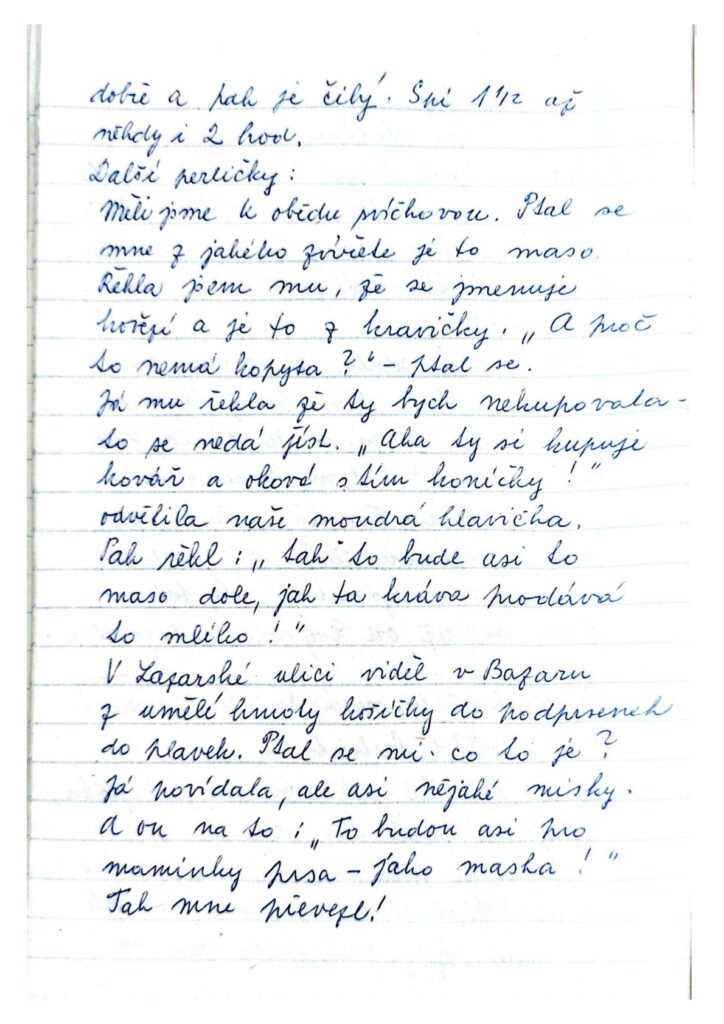 dobře a pak je čilý. Spí 1 1/2 až
někdy i 2 hod.
Další perličky:
Měli jsme k obědu svíčkovou. Ptal se
mne z jakého zvířete je to maso.
Řekla jsem mu, že se jmenuje
hořejší a je to z kravičky. „A proč
to nemá kopyta?" - ptal se.
Já mu řekla že ty bych nekupovala -
to se nedá jíst. „Aha ty si kupuje
kovář a oková s tím koníčky!"
odvětila naše moudrá hlavička.
Pak řekl: „tak to bude asi to
maso dole, jak ta kráva prodává
to mlíko!"
V Lazarské ulici viděl v Bazaru
z umělé hmoty košíčky do podprsenek
do plavek. Ptal se mi co to je?
Já povídala, ale asi nějaké misky.
A on na to: „To budou asi pro
maminky prsa - jako maska!"
Tak mne převezl!